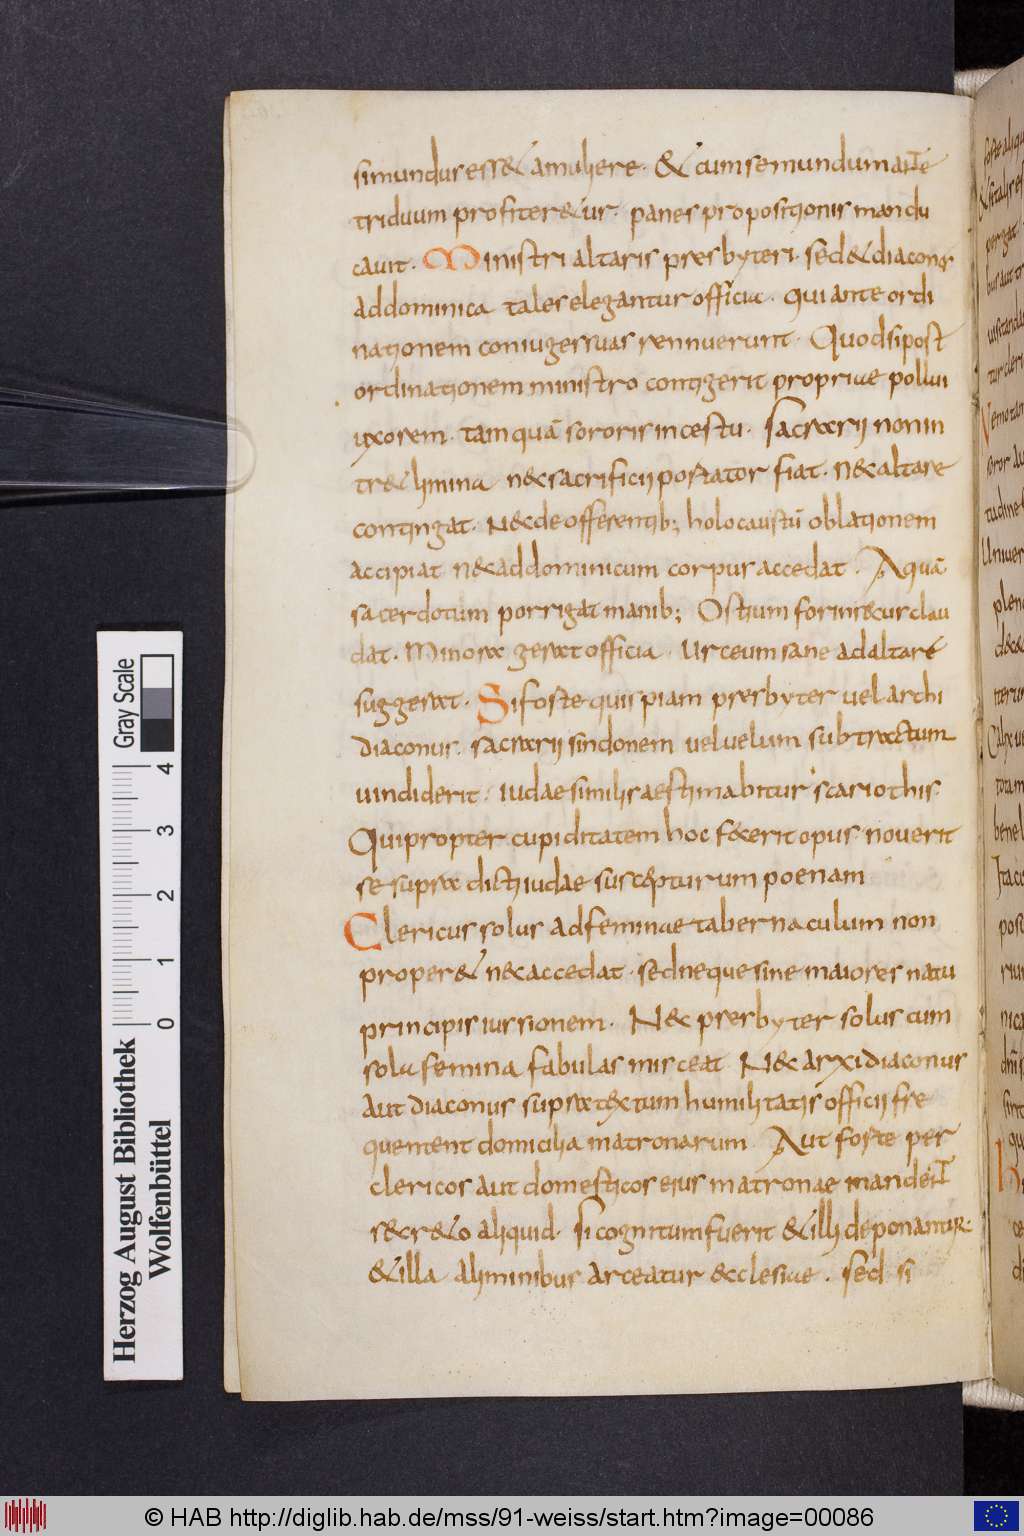 simundus ess& amuliere· & cum se mundum ante
triduum profiter&ur· panes propositionis mandu
cauit· Ministri altaris presbyteri· sed & diaconos
ad dominica tales elegantur officia· qui ante ordi
nationem coniuges suas rennuerunt· Quod si post
ordinationem ministro contigerit propriae pollui
uxorem· tamquā sororis incestu· sacrarii non in
tr& limina n&c sacrificii portator fiat· n&c altare
contingat· N&c de offerentib; holocaustū oblationem
accipiat n&c ad dominicum corpus accedat· Aquā
sacerdotum porrigat manib; Ostium forinsecus clau
dat· Minora gerat officia· Urceum sane ad altare
suggerat· Si forte quispiam presbyter uel archi
diaconus· sacrarii sindonem uel uelum subtractum
uindiderit· iudae similis aestimabitur scariothis·
Qui propter cupiditatem hoc fecerit opus nouerit
se supra dicti iudae suscepturum poenam
Clericus solus ad feminae tabernaculum non
proper& n&c accedat· sed neque sine maiores natu
principis iussionem· N&c presbyter solus cum
sola femina fabulas misceat N&c arxidiaconus
aut diaconus supra textum humilitatis officii fre
quentent domicilia matronarum Aut forte per
clericos aut domesticos eius matronae mandent
secr&o aliquid· si cognitum fuerit & illi deponantur·
& illa aliminibus arceatur &cclesiae· sed si
Herzog August Bibliothek
Wolfenbüttel
Gray Scale
0 1 2 3 4
© HAB http://diglib.hab.de/mss/91-weiss/start.htm?image=00086